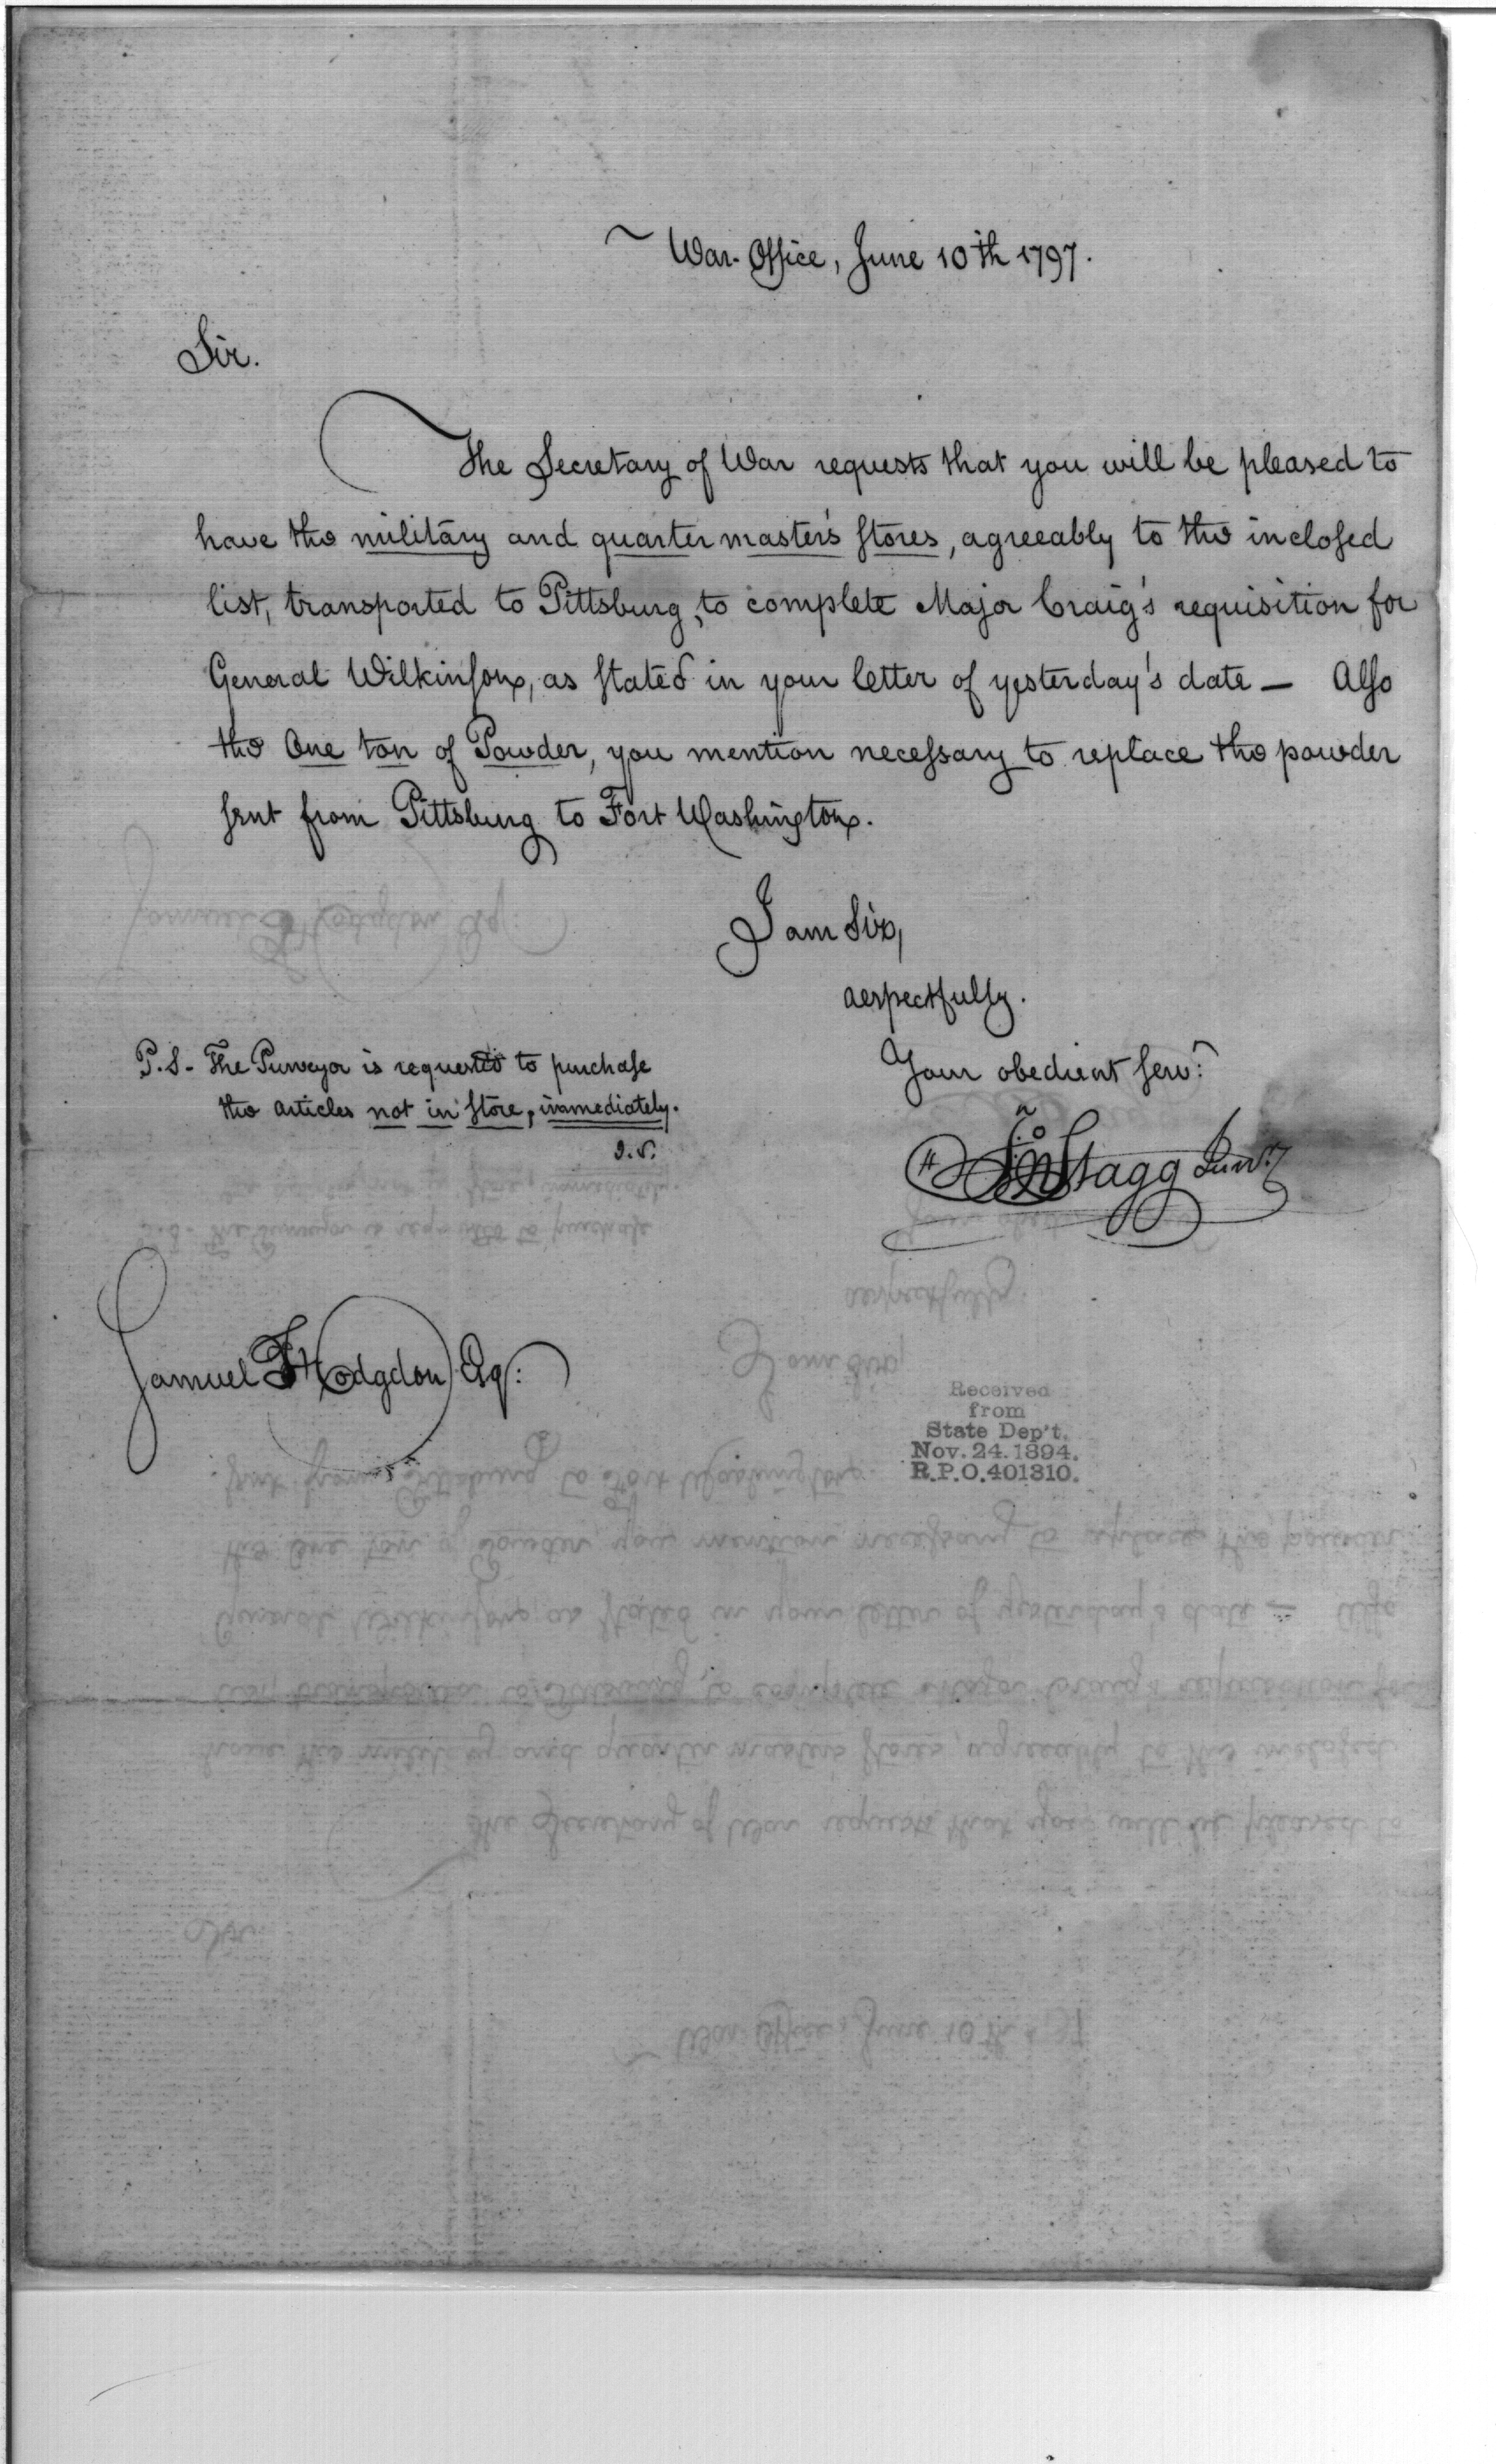 War Office, June 10th 1797.
Sir.
The Secretary of War requests that you will be pleased to
have the military and quarter master's stores, agreeably to the inclosed
list, transported to Pittsburg, to complete Major Craig's requisition for
General Wilkinson, as stated in your letter of yesterday's date — Also
the One ton of Powder, you mention necessary to replace the powder
sent from Pittsburg to Fort Washington.
I am Sir,
respectfully.
Your obedient serv:t
Jno Stagg Junr.
P.S - The Purveyor is requested to purchase
the articles not in store, immediately.
J.S.
Samuel Hodgdon Esq:
Received
from
State Dep't.
Nov. 24. 1894.
R.P.O. 401310.